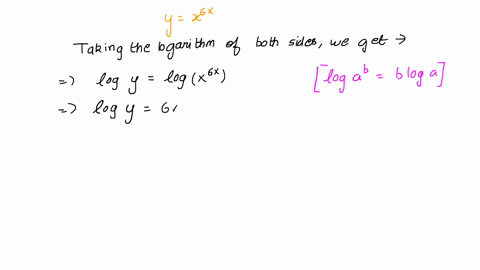 y = x^{6x}
Taking the logarithm of both sides, we get →
=> log y = log (x^{6x}) [log a^b = b log a]
=> log y = 6x